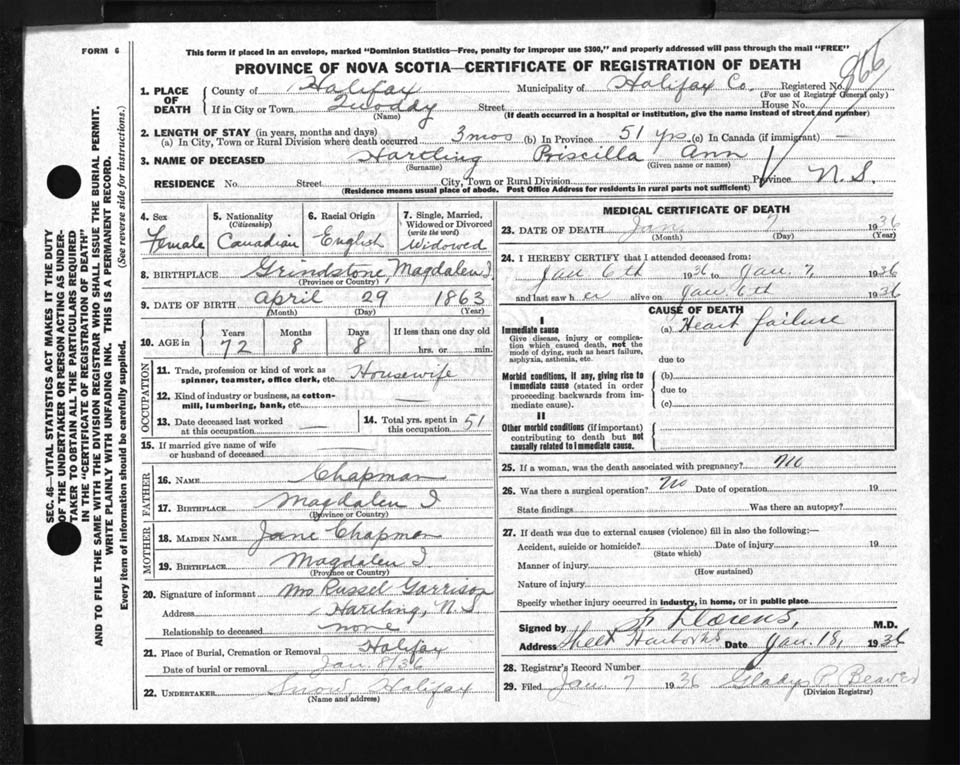 FORM 6
This form if placed in an envelope, marked "Dominion Statistics—Free, penalty for improper use $300," and properly addressed will pass through the mail "FREE"
PROVINCE OF NOVA SCOTIA—CERTIFICATE OF REGISTRATION OF DEATH
1. PLACE OF DEATH
County of Halifax Municipality of Halifax Co. Registered No. 866
(For use of Registrar General only)
If in City or Town Quoddy Street House No.
(Name) (If death occurred in a hospital or institution, give the name instead of street and number)
2. LENGTH OF STAY (in years, months and days)
(a) In City, Town or Rural Division where death occurred 3 mos (b) In Province 51 yrs (c) In Canada (if immigrant) —
3. NAME OF DECEASED Hartling Priscilla Ann
(Surname) (Given name or names)
RESIDENCE No. Street City, Town or Rural Division Province N.S.
(Residence means usual place of abode. Post Office Address for residents in rural parts not sufficient)
4. Sex Female
5. Nationality (Citizenship) Canadian
6. Racial Origin English
7. Single, Married, Widowed or Divorced (write the word) Widowed
8. BIRTHPLACE Grindstone, Magdalen I.
(Province or Country)
9. DATE OF BIRTH April 29 1863
(Month) (Day) (Year)
10. AGE in Years 72 Months 8 Days 8 If less than one day old hrs. or min.
OCCUPATION
11. Trade, profession or kind of work as spinner, teamster, office clerk, etc. Housewife
12. Kind of industry or business, as cotton-mill, lumbering, bank, etc. —
13. Date deceased last worked at this occupation —
14. Total yrs. spent in this occupation 51
15. If married give name of wife or husband of deceased —
FATHER
16. NAME Chapman
17. BIRTHPLACE Magdalen I
(Province or Country)
MOTHER
18. MAIDEN NAME Jane Chapman
19. BIRTHPLACE Magdalen I.
(Province or Country)
20. Signature of informant Mrs Russel Garrison
Address Hartling, N.S.
Relationship to deceased none
21. Place of Burial, Cremation or Removal Halifax
Date of burial or removal Jan. 8/36
22. UNDERTAKER Snow, Halifax
(Name and address)
MEDICAL CERTIFICATE OF DEATH
23. DATE OF DEATH Jan. 7 1936
(Month) (Day) (Year)
24. I HEREBY CERTIFY that I attended deceased from:
Jan 6th 1936 to Jan. 7, 1936
and last saw her alive on Jan 6th 1936
CAUSE OF DEATH
I
Immediate cause
Give disease, injury or complication which caused death, not the mode of dying, such as heart failure, asphyxia, asthenia, etc.
(a) Heart failure
due to
Morbid conditions, if any, giving rise to immediate cause (stated in order proceeding backwards from immediate cause).
(b)
due to
(c)
II
Other morbid conditions (if important) contributing to death but not causally related to immediate cause.
25. If a woman, was the death associated with pregnancy? No
26. Was there a surgical operation? No Date of operation 19
State findings Was there an autopsy?
27. If death was due to external causes (violence) fill in also the following:—
Accident, suicide or homicide? Date of injury 19
(State which)
Manner of injury
(How sustained)
Nature of injury
Specify whether injury occurred in industry, in home, or in public place
Signed by M.D.
Address Sheet Harbour Date Jan. 18, 1936
28. Registrar's Record Number
29. Filed Jan. 7 1936 Gladys P. Beaver
(Division Registrar)
SEC. 46—VITAL STATISTICS ACT MAKES IT THE DUTY
OF THE UNDERTAKER OR PERSON ACTING AS UNDER-
TAKER TO OBTAIN ALL THE PARTICULARS REQUIRED
IN THE "CERTIFICATE OF REGISTRATION OF DEATH"
AND TO FILE THE SAME WITH THE DIVISION REGISTRAR WHO SHALL ISSUE THE BURIAL PERMIT.
WRITE PLAINLY WITH UNFADING INK. THIS IS A PERMANENT RECORD.
Every item of information should be carefully supplied. (See reverse side for instructions.)